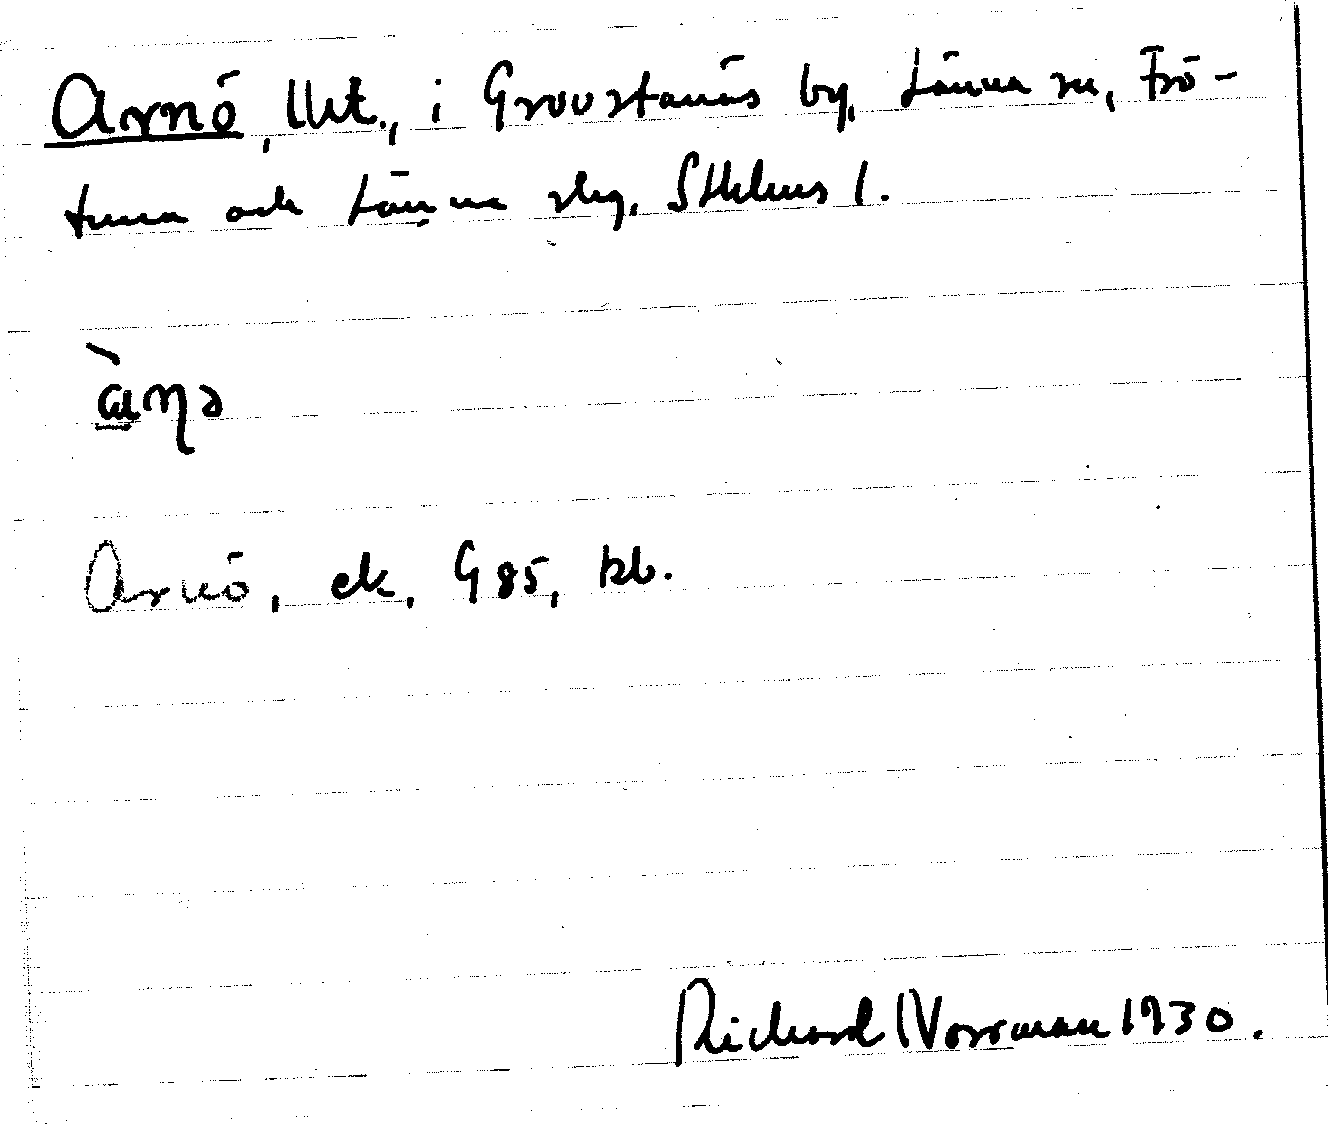 Arnö, lht., i Grovstanäs by, Länna sn, Frö-
tuna och Länna slg, Sthlms l.
Arnö, ek. G 85, kb.
Richard Norrman 1930.